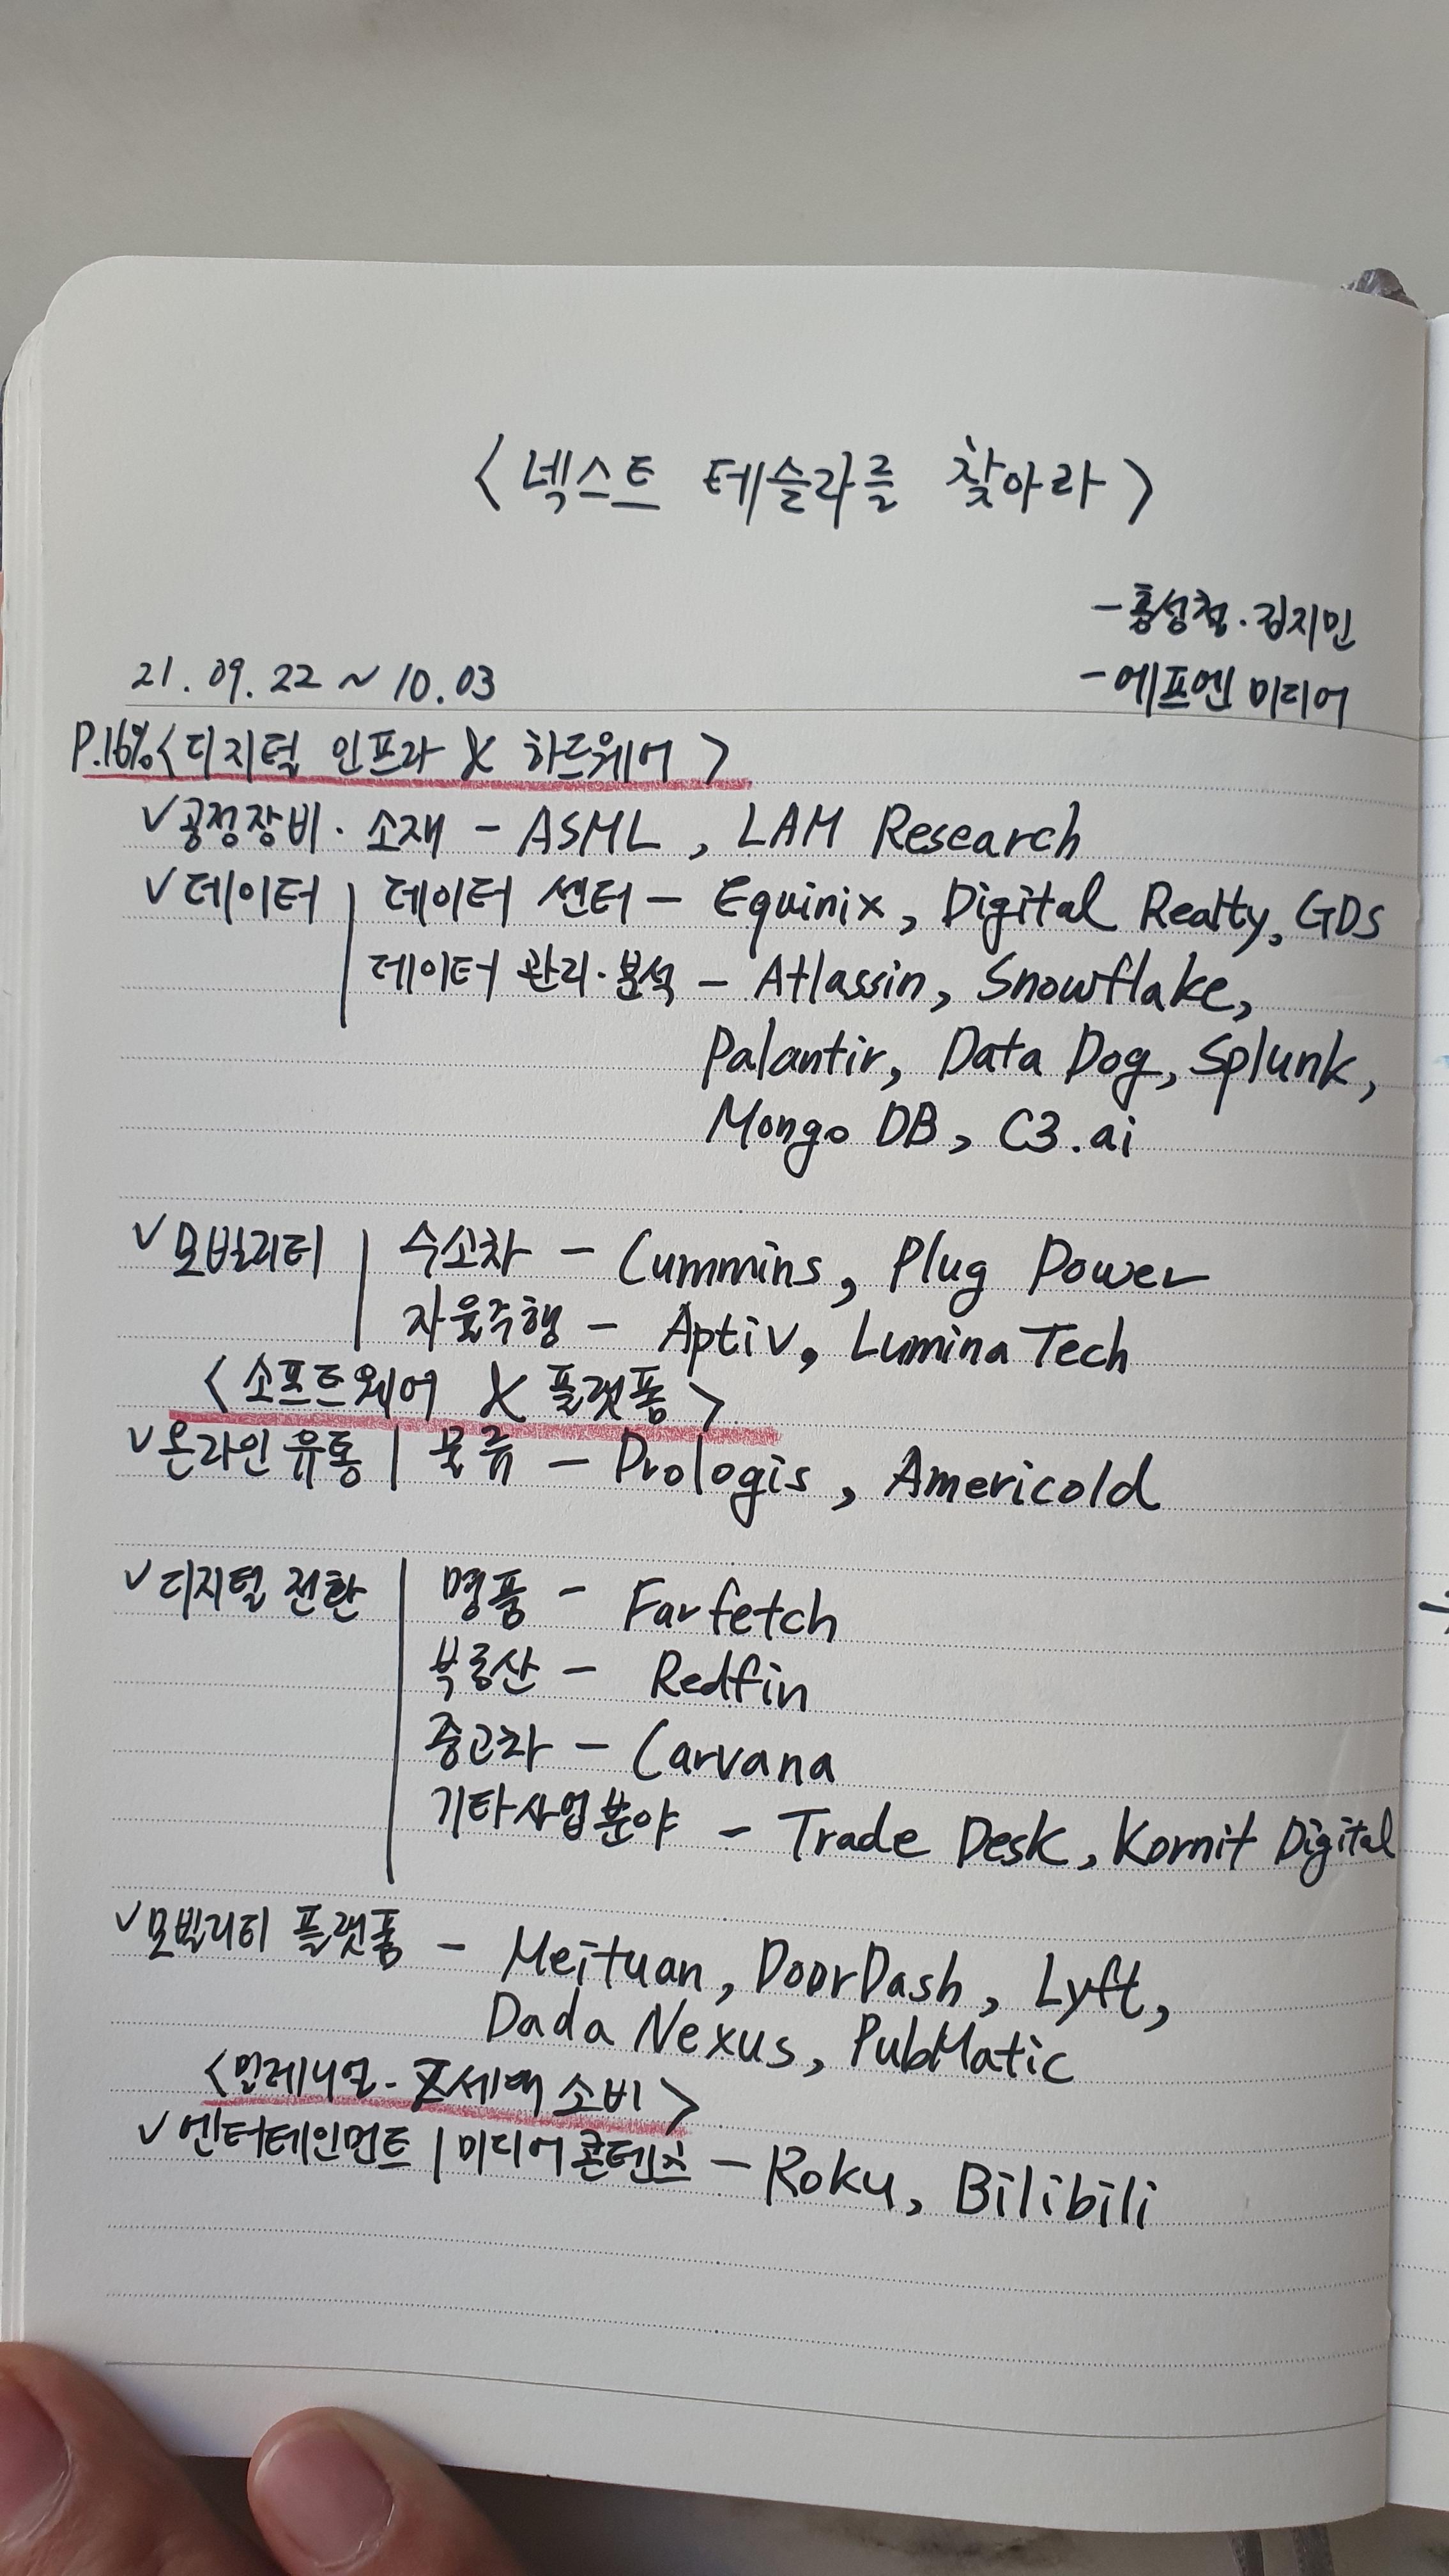 <넥스트 테슬라를 찾아라>
- 홍성철·김지민
- 에프엔미디어
21.09.22 ~ 10.03
P.16% <디지털 인프라 X 하드웨어>
✓공정장비·소재 - ASML, LAM Research
✓데이터 | 데이터 센터 - Equinix, Digital Realty, GDS
데이터 관리·분석 - Atlassin, Snowflake,
Palantir, Data Dog, Splunk,
Mongo DB, C3.ai
✓모빌리티 | 수소차 - Cummins, Plug Power
자율주행 - Aptiv, Lumina Tech
<소프트웨어 X 플랫폼>
✓온라인 유통 | 물류 - Prologis, Americold
✓디지털 전환 | 명품 - Farfetch
부동산 - Redfin
중고차 - Carvana
기타사업분야 - Trade Desk, Kornit Digital
✓모빌리티 플랫폼 - Meituan, DoorDash, Lyft,
Dada Nexus, PubMatic
<밀레니얼·Z세대 소비>
✓엔터테인먼트 | 미디어콘텐츠 - Roku, Bilibili